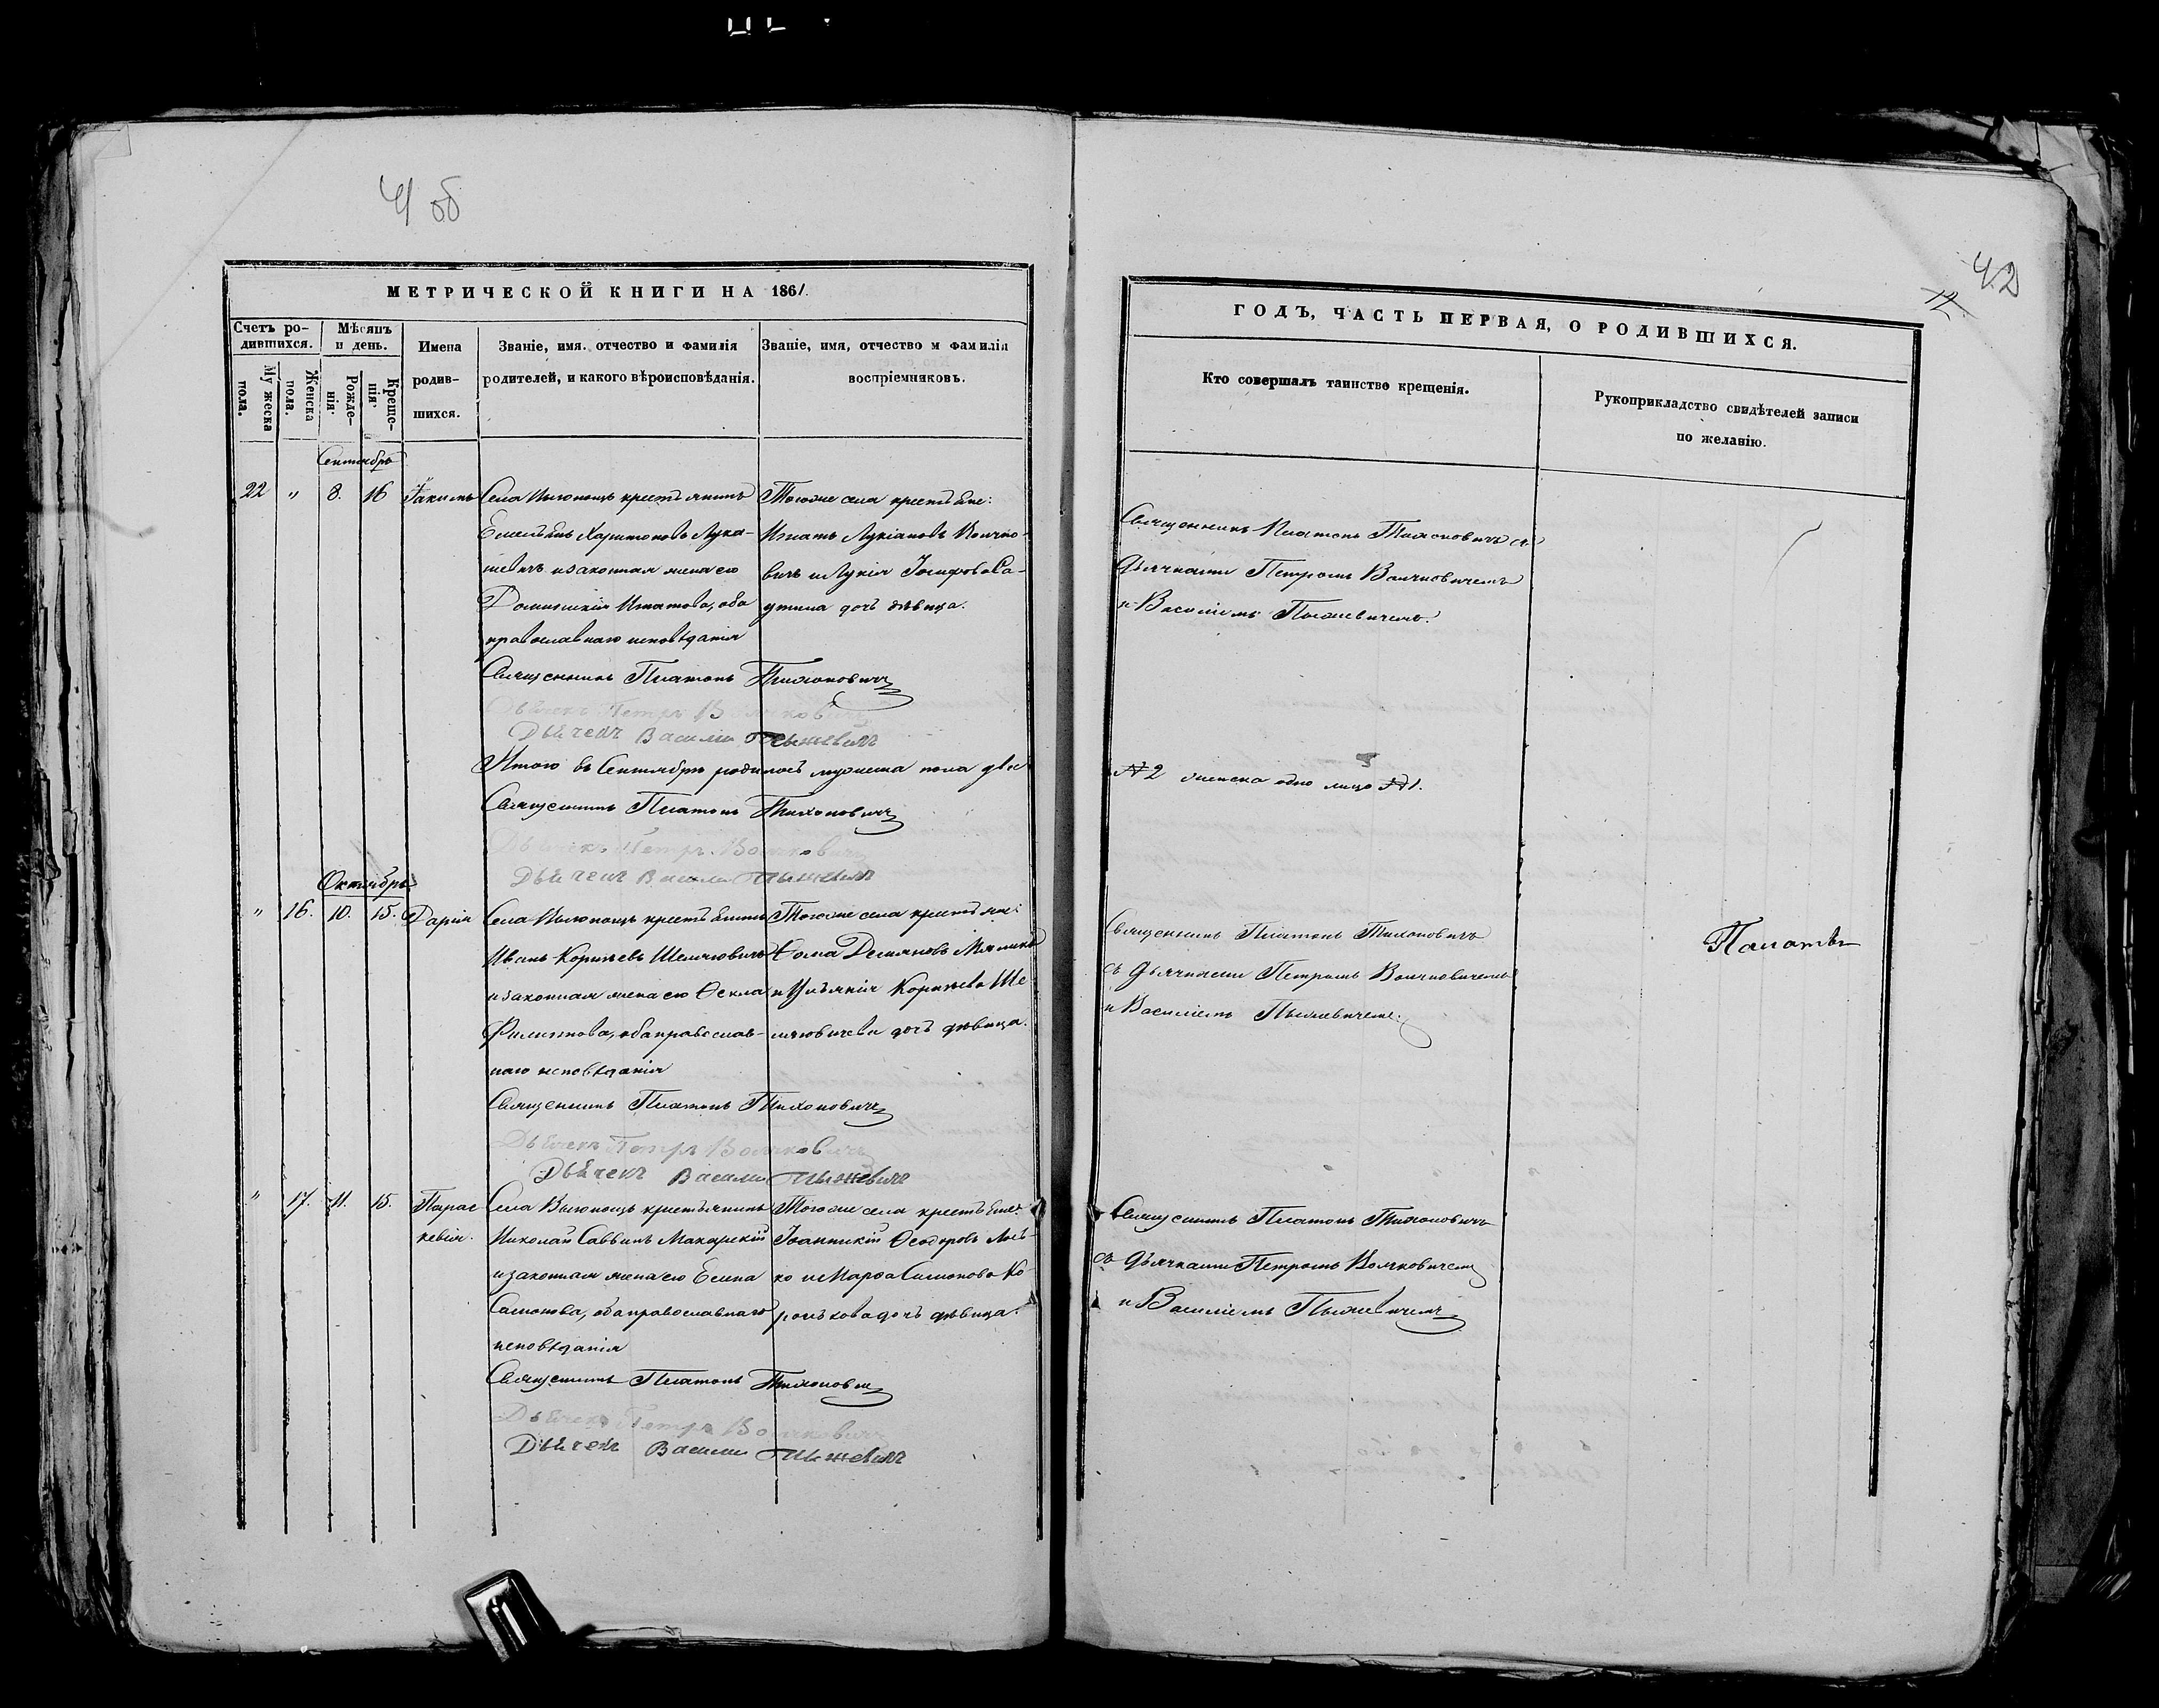 41 об
МЕТРИЧЕСКОЙ КНИГИ НА 1861.
Счетъ ро-
дившихся.
Мѣсяцъ
и день.
Имена
родив-
шихся.
Званіе, имя. отчество и фамилія
родителей, и какого вѣроисповѣданія.
Званіе, имя, отчество и фамилія
воспріемниковъ.
Мужеска
пола.
Женска
пола.
Рожде-
нія.
Креще-
нія.
Сентябрь
22 " 8. 16 Іакимъ
Села Выгонощъ крестьянинъ
Емельянъ Харитоновъ Лука-
шевичъ и законная жена его
Домникія Игнатова, оба
православнаго исповѣданія
Тогоже села крестьяне:
Игнатъ Лукіановъ
и Лукія Іосифова Са-
дочь дѣвица.
Священникъ Платонъ Тихоновичъ
Дьячекъ Петръ Волчковичъ
Дьячекъ Василій Пыжевичъ
Итого въ Сентябрѣ родилось мужеска пола два
Священникъ Платонъ Тихоновичъ
Дьячекъ Петръ Волчковичъ
Дьячекъ Василій Пыжевичъ
Октябрь
" 16. 10. 15. Дарія
Села Выгонощъ крестьянинъ
Иванъ Корнѣевъ Шеляговичъ
и законная жена его Ѳекла
Филиппова, оба православ-
наго исповѣданія
Тогоже села крестьяне:
Ѳома Демяновъ
и Уліянія Корнѣева Ше-
ляговичева дочь дѣвица.
Священникъ Платонъ Тихоновичъ
Дьячекъ Петръ Волчковичъ
Дьячекъ Василій Пыжевичъ
" 17. 11. 15. Парас-
кевія.
Села Выгонощъ крестьянинъ
Николай Саввинъ Макарскій
и законная жена его Елена
Самсонова, оба православнаго
исповѣданія
Тогоже села крестьяне:
Іоанникій Ѳеодоровъ
и Марѳа Симонова Ко-
дочь дѣвица.
Священникъ Платонъ Тихоновичъ
Дьячекъ Петръ Волчковичъ
Дьячекъ Василій Пыжевичъ
42
12
ГОДЪ, ЧАСТЬ ПЕРВАЯ, О РОДИВШИХСЯ.
Кто совершалъ таинство крещенія.
Рукоприкладство свидѣтелей записи
по желанію.
Священникъ Платонъ Тихоновичъ съ
дьячками Петромъ Волчковичемъ
и Василіемъ Пыжевичемъ.
№ 2 женска одно лицо № 1.
Священникъ Платонъ Тихоновичъ
съ дьячками Петромъ Волчковичемъ
и Василіемъ Пыжевичемъ.
Священникъ Платонъ Тихоновичъ
съ дьячками Петромъ Волчковичемъ
и Василіемъ Пыжевичемъ